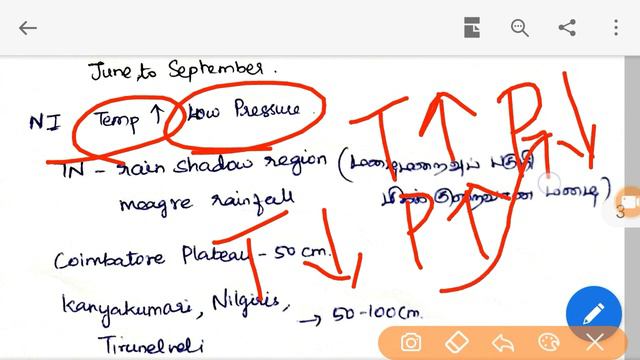 June, to September.
NI Temp ↑ Low Pressure.
T ↑ P ↓
TN - rain shadow region (மழைமறைவுப் பகுதி
meagre rainfall மிகக்குறைவான மழை)
T ↓ P ↑
Coimbatore Plateau - 50 cm.
Kanyakumari, Nilgiris, → 50-100 cm.
Tirunelveli
3